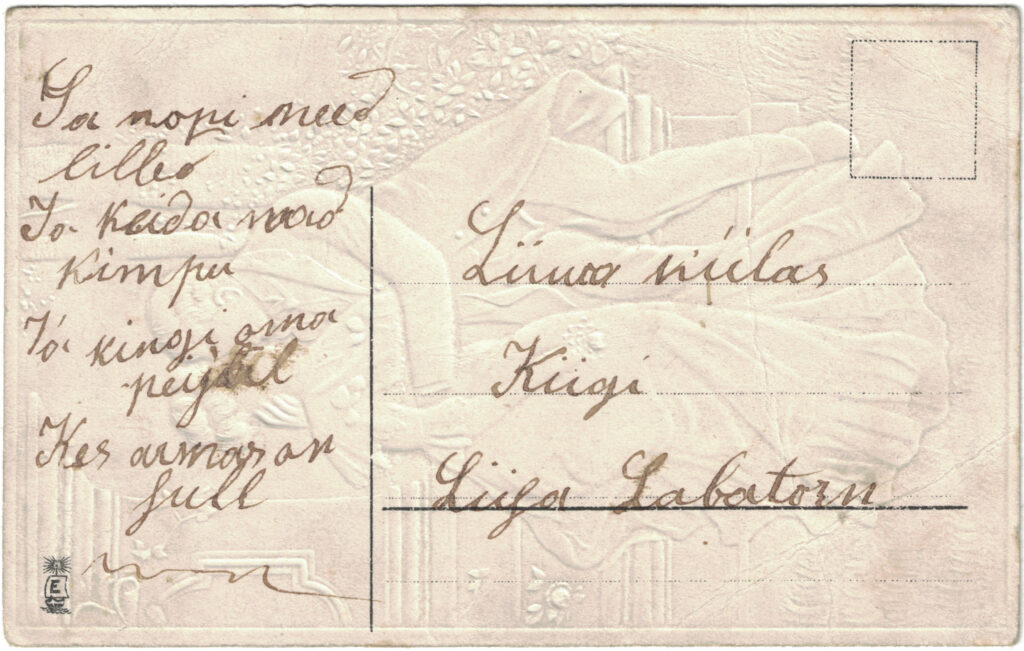 Sa nopi need
lilled
Ja keida nad
kimpu
Ja kingi oma
peiule
Kes armas on
sull
Liiwa niilas
Kiigi
Liisa Labatorn
E